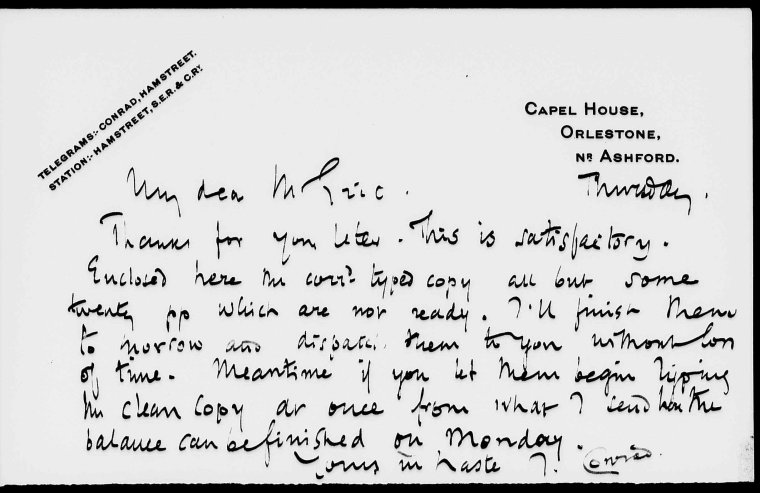 TELEGRAMS:- CONRAD, HAMSTREET.
STATION:- HAMSTREET, S.E.R. & C.RY.
CAPEL HOUSE,
ORLESTONE,
NR ASHFORD.
Thursday.
My dear Mr Eric.
Thanks for your letter. This is satisfactory.
Enclosed here the corrd typed copy all but some
twenty pp which are not ready. I'll finish them
to morrow and dispatch them to you without loss
of time. Meantime if you let them begin typing
the clean copy at once from what I send here the
balance can be finished on Monday.
Yours in haste J. Conrad.